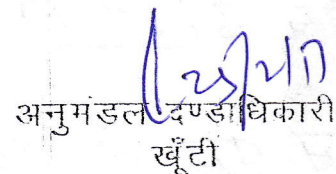 अनुमंडल दण्डाधिकारी
खूँटी